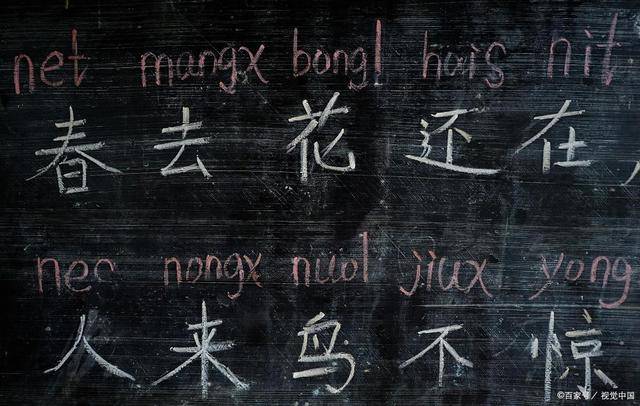 net mangx bongl hais nit
春去花还在
nec nongx nuol jiux yong
人来鸟不惊
©百家号／视觉中国